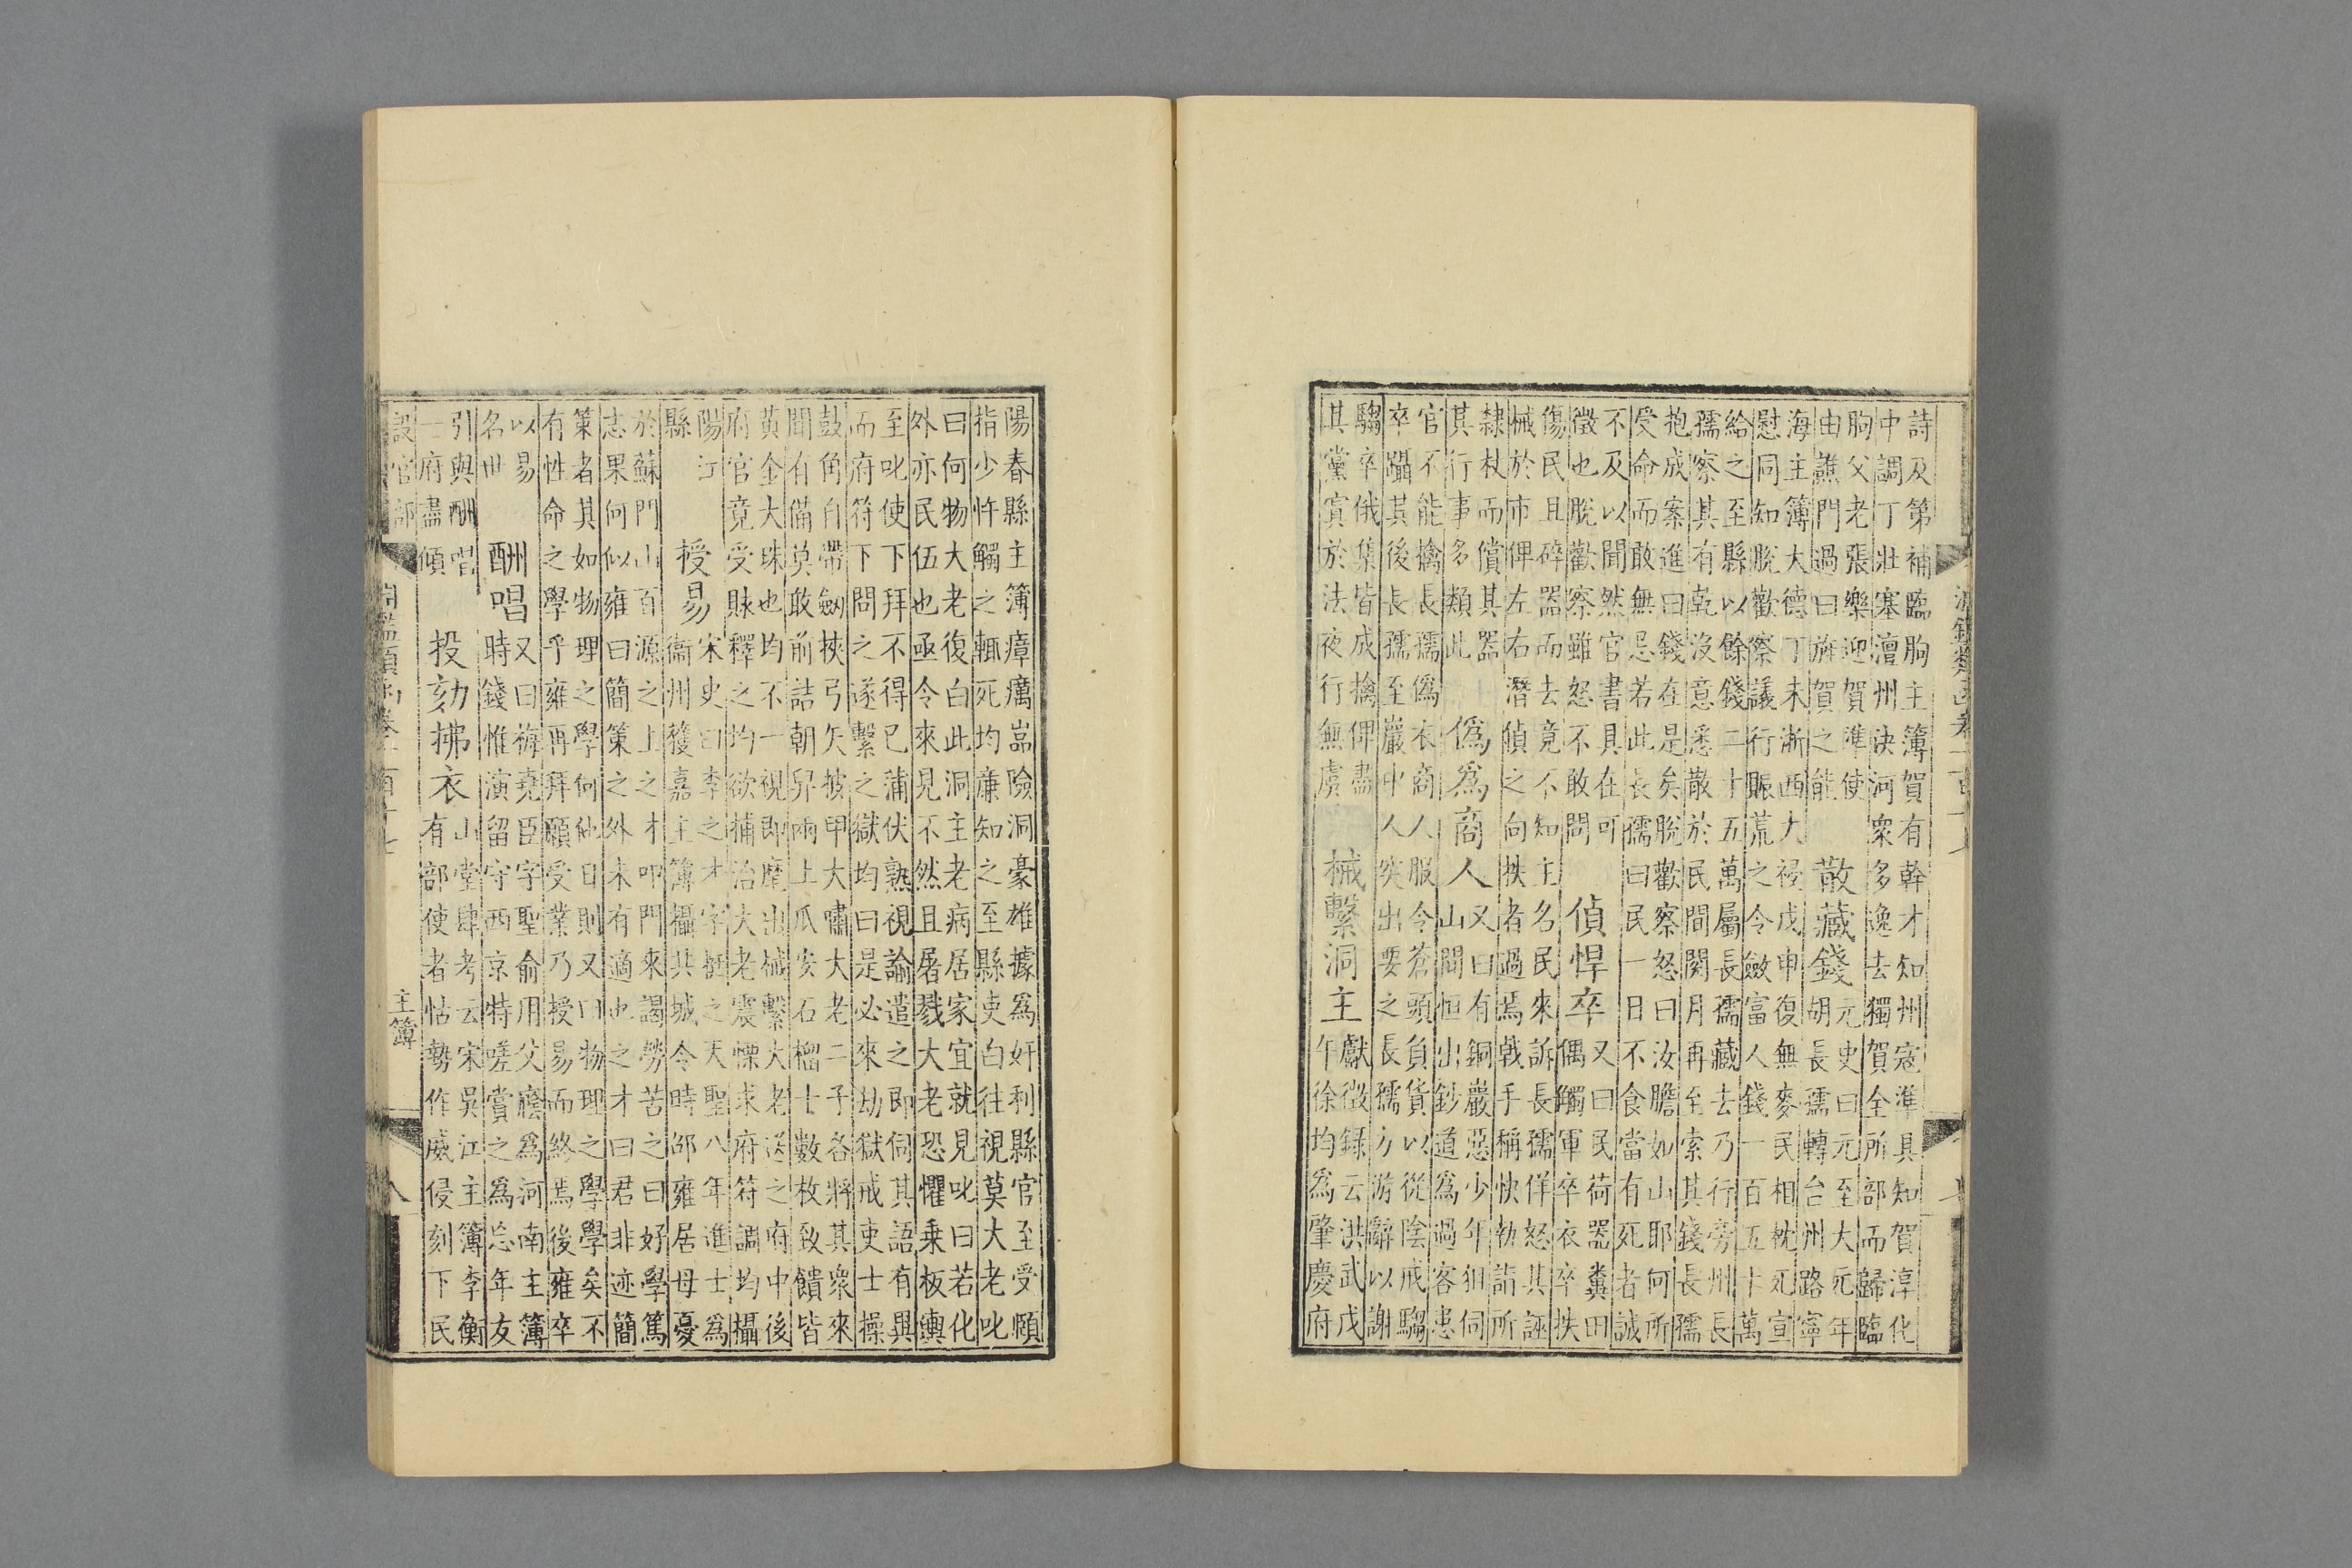 詩及第補臨朐主簿賀有幹才知州寇準具知賀淳化
中調丁壯塞澶州決河眾多逸去獨賀全所部而歸臨
朐父老張樂迎賀準使
由譙門過曰旌賀之能
散藏錢
元史曰元至大元年
胡長孺轉台州路寧
海主簿大德丁未浙西大祲戊申復無麥民相枕死宣
慰同知脫歡察議行賑荒之令斂富人錢一百五十萬
給之至縣以餘錢二十五萬屬長孺藏去乃行旁州長
孺察其有乾沒意悉散於民間閱月再至索其錢長孺
抱成案進曰錢在是矣脫歡察怒曰汝膽如山耶何所
受命而敢無忌若此長孺曰民一日不食當有死者誠
不及以聞然官書具在可
徵也脫歡察雖怒不敢問
偵悍卒
又曰民荷器糞田
偶觸軍卒衣卒抶
傷民且碎器而去竟不知主名民來訴長孺佯怒其誣
械於市俾左右潛偵之向抶者過焉戟手稱快執詣所
隸杖而償其器
其行事多類此
偽為商人
又曰有銅巖惡少年狙伺
山間恒出鈔道為過客患
官不能擒長孺偽衣商人服令蒼頭負貨以從陰戒騶
卒躡其後長孺至巖中人突出要之長孺方游辭以謝
騶卒俄集皆成擒俾盡
其黨寘於法夜行無虞
械繫洞主
獻徵錄云洪武戊
午徐均為肇慶府
陽春縣主簿瘴癘嵓險洞豪雄據為奸利縣官至受頤
指少忤觸之輒死均廉知之至縣吏白往視莫大老叱
曰何物大老復白此洞主老病居家宜就見叱曰若化
外亦民伍也亟令來見不然且屠戮大老恐懼乘板輿
至叱使下拜不得已蒲伏熟視諭遣之即伺其語有異
而府符下問之遂繫之獄均曰是必來劫獄戒吏士操
鼓角自帶劍挾弓矢披甲大嘯大老二子各將其眾來
聞有備莫敢前詰朝舁兩上瓜安石榴士數枚致饋皆
黃金大珠也均不一視即麾出械繫大老送之府中後
府官竟受賕釋之均欲捕治大老震慄求府符調均攝
陽江
縣
授易
宋史曰李之才字挺之天聖八年進士為
衞州獲嘉主簿攝共城令時邵雍居母憂
於蘇門山百源之上之才叩門來謁勞苦之曰好學篤
志果何似雍曰簡策之外未有適也之才曰君非迹簡
策者其如物理之學何他日則又曰物理之學學矣不
有性命之學乎雍再拜願受業乃授易而終焉後雍卒
以易
名世
酬唱
又曰梅堯臣字聖俞用父廕為河南主簿
時錢惟演留守西京特嗟賞之為忘年友
引與酬唱
一府盡傾
投劾拂衣
山堂肆考云宋吳江主簿李衡
有部使者怙勢作威侵刻下民
設官部
主簿
八